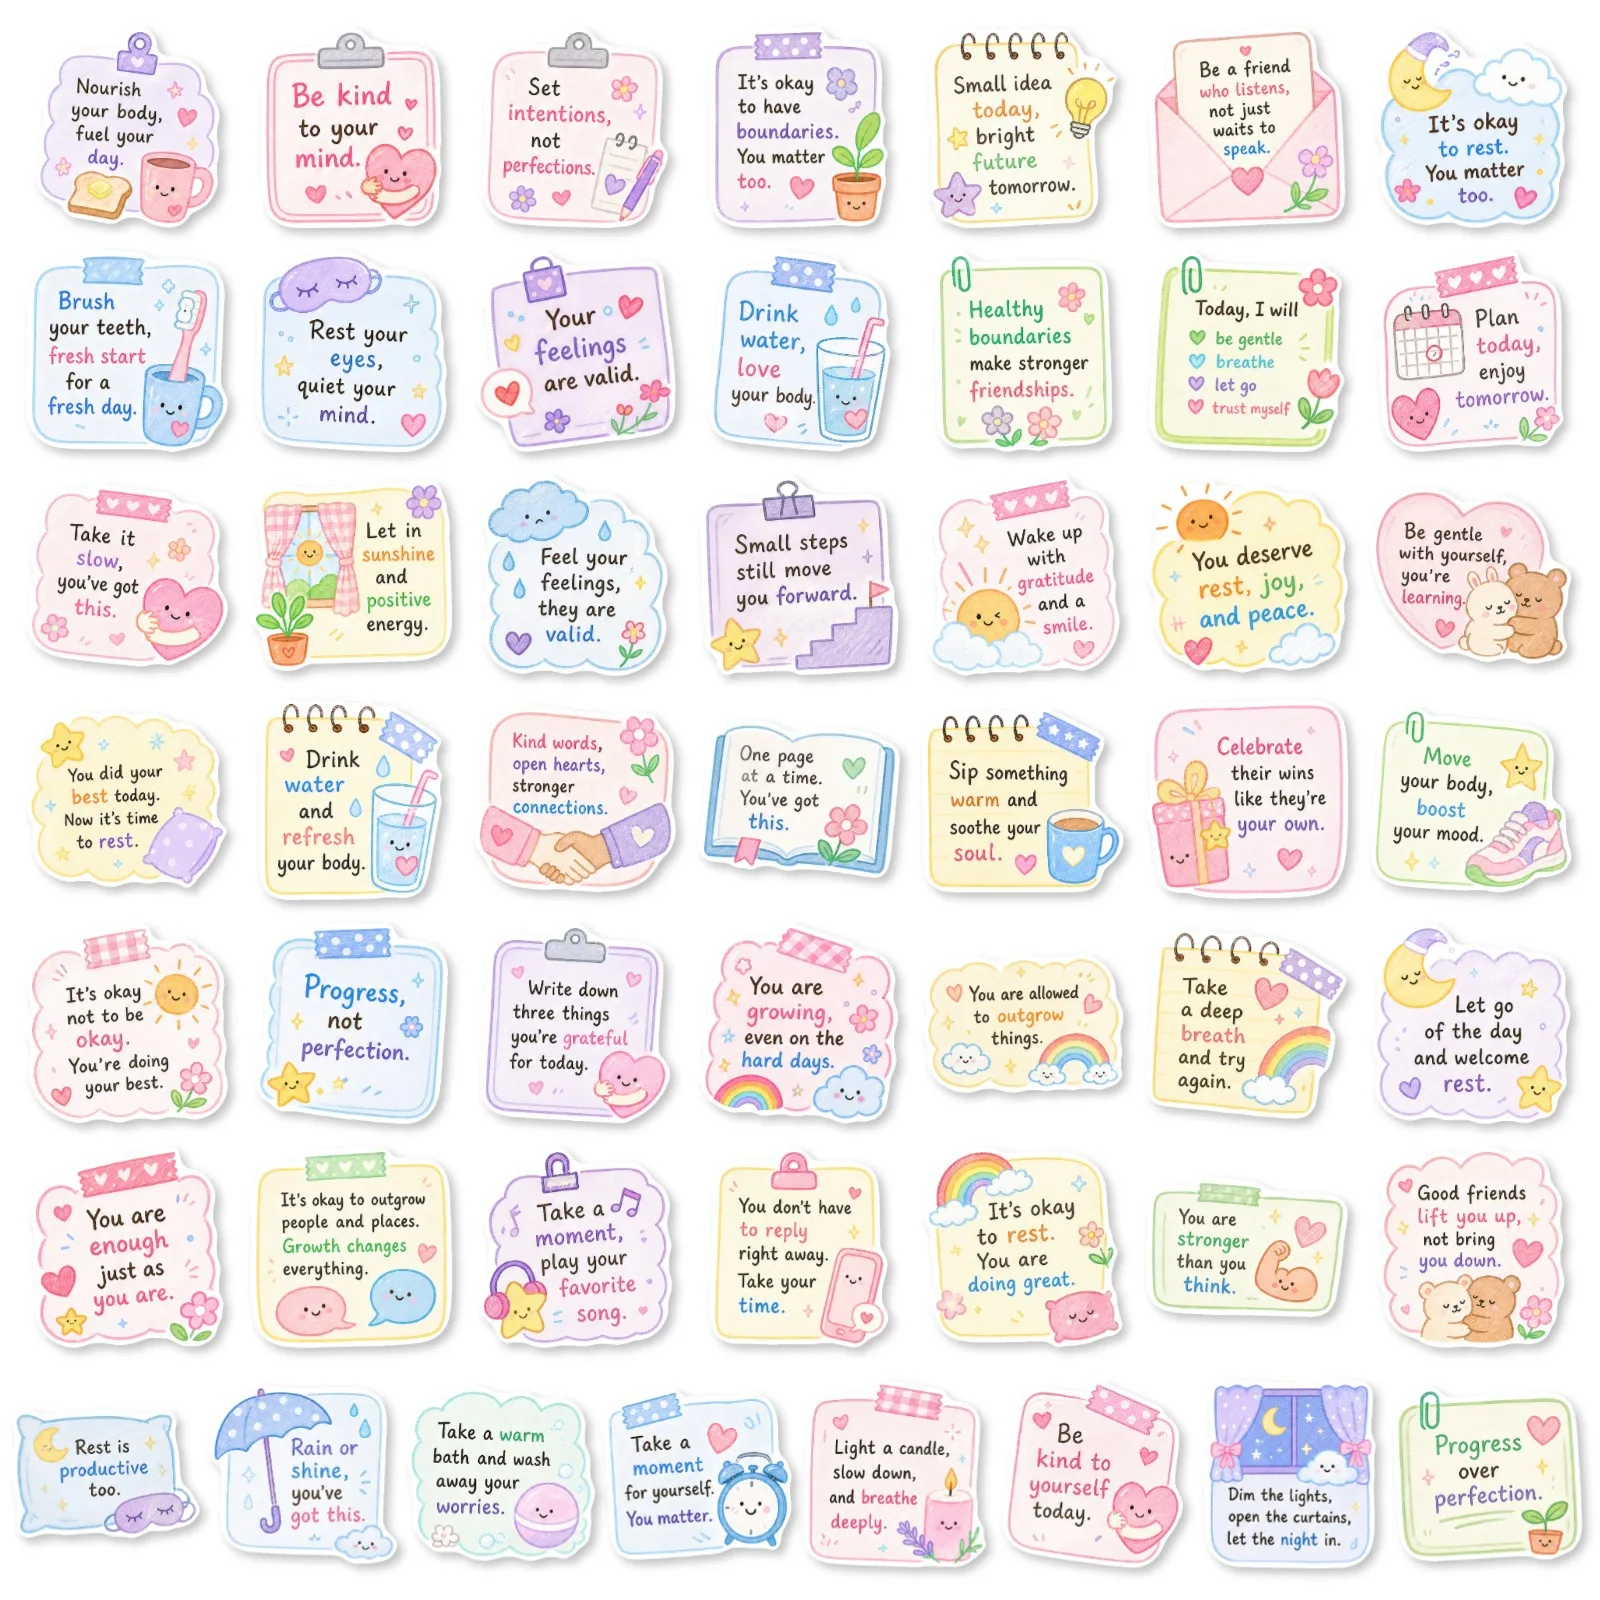 Nourish
your body,
fuel your
day.
Be kind
to your
mind.
Set
intentions,
not
perfections.
It's okay
to have
boundaries.
You matter
too.
Small idea
today,
bright
future
tomorrow.
Be a friend
who listens,
not just
waits to
speak.
It's okay
to rest.
You matter
too.
Brush
your teeth,
fresh start
for a
fresh day.
Rest your
eyes,
quiet your
mind.
Your
feelings
are valid.
Drink
water,
love
your body.
Healthy
boundaries
make stronger
friendships.
Today, I will
be gentle
breathe
let go
trust myself
Plan
today,
enjoy
tomorrow.
Take it
slow,
you've got
this.
Let in
sunshine
and
positive
energy.
Feel your
feelings,
they are
valid.
Small steps
still move
you forward.
Wake up
with
gratitude
and a
smile.
You deserve
rest, joy,
and peace.
Be gentle
with yourself,
you're
learning.
You did your
best today.
Now it's time
to rest.
Drink
water
and
refresh
your body.
Kind words,
open hearts,
stronger
connections.
One page
at a time.
You've got
this.
Sip something
warm and
soothe your
soul.
Celebrate
their wins
like they're
your own.
Move
your body,
boost
your mood.
It's okay
not to be
okay.
You're doing
your best.
Progress,
not
perfection.
Write down
three things
you're grateful
for today.
You are
growing,
even on the
hard days.
You are allowed
to outgrow
things.
Take
a deep
breath
and try
again.
Let go
of the day
and welcome
rest.
You are
enough
just as
you are.
It's okay to outgrow
people and places.
Growth changes
everything.
Take a
moment,
play your
favorite
song.
You don't have
to reply
right away.
Take your
time.
It's okay
to rest.
You are
doing great.
You are
stronger
than you
think.
Good friends
lift you up,
not bring
you down.
Rest is
productive
too.
Rain or
shine,
you've
got this.
Take a warm
bath and wash
away your
worries.
Take a
moment
for yourself.
You matter.
Light a candle,
slow down,
and breathe
deeply.
Be
kind to
yourself
today.
Dim the lights,
open the curtains,
let the night in.
Progress
over
perfection.